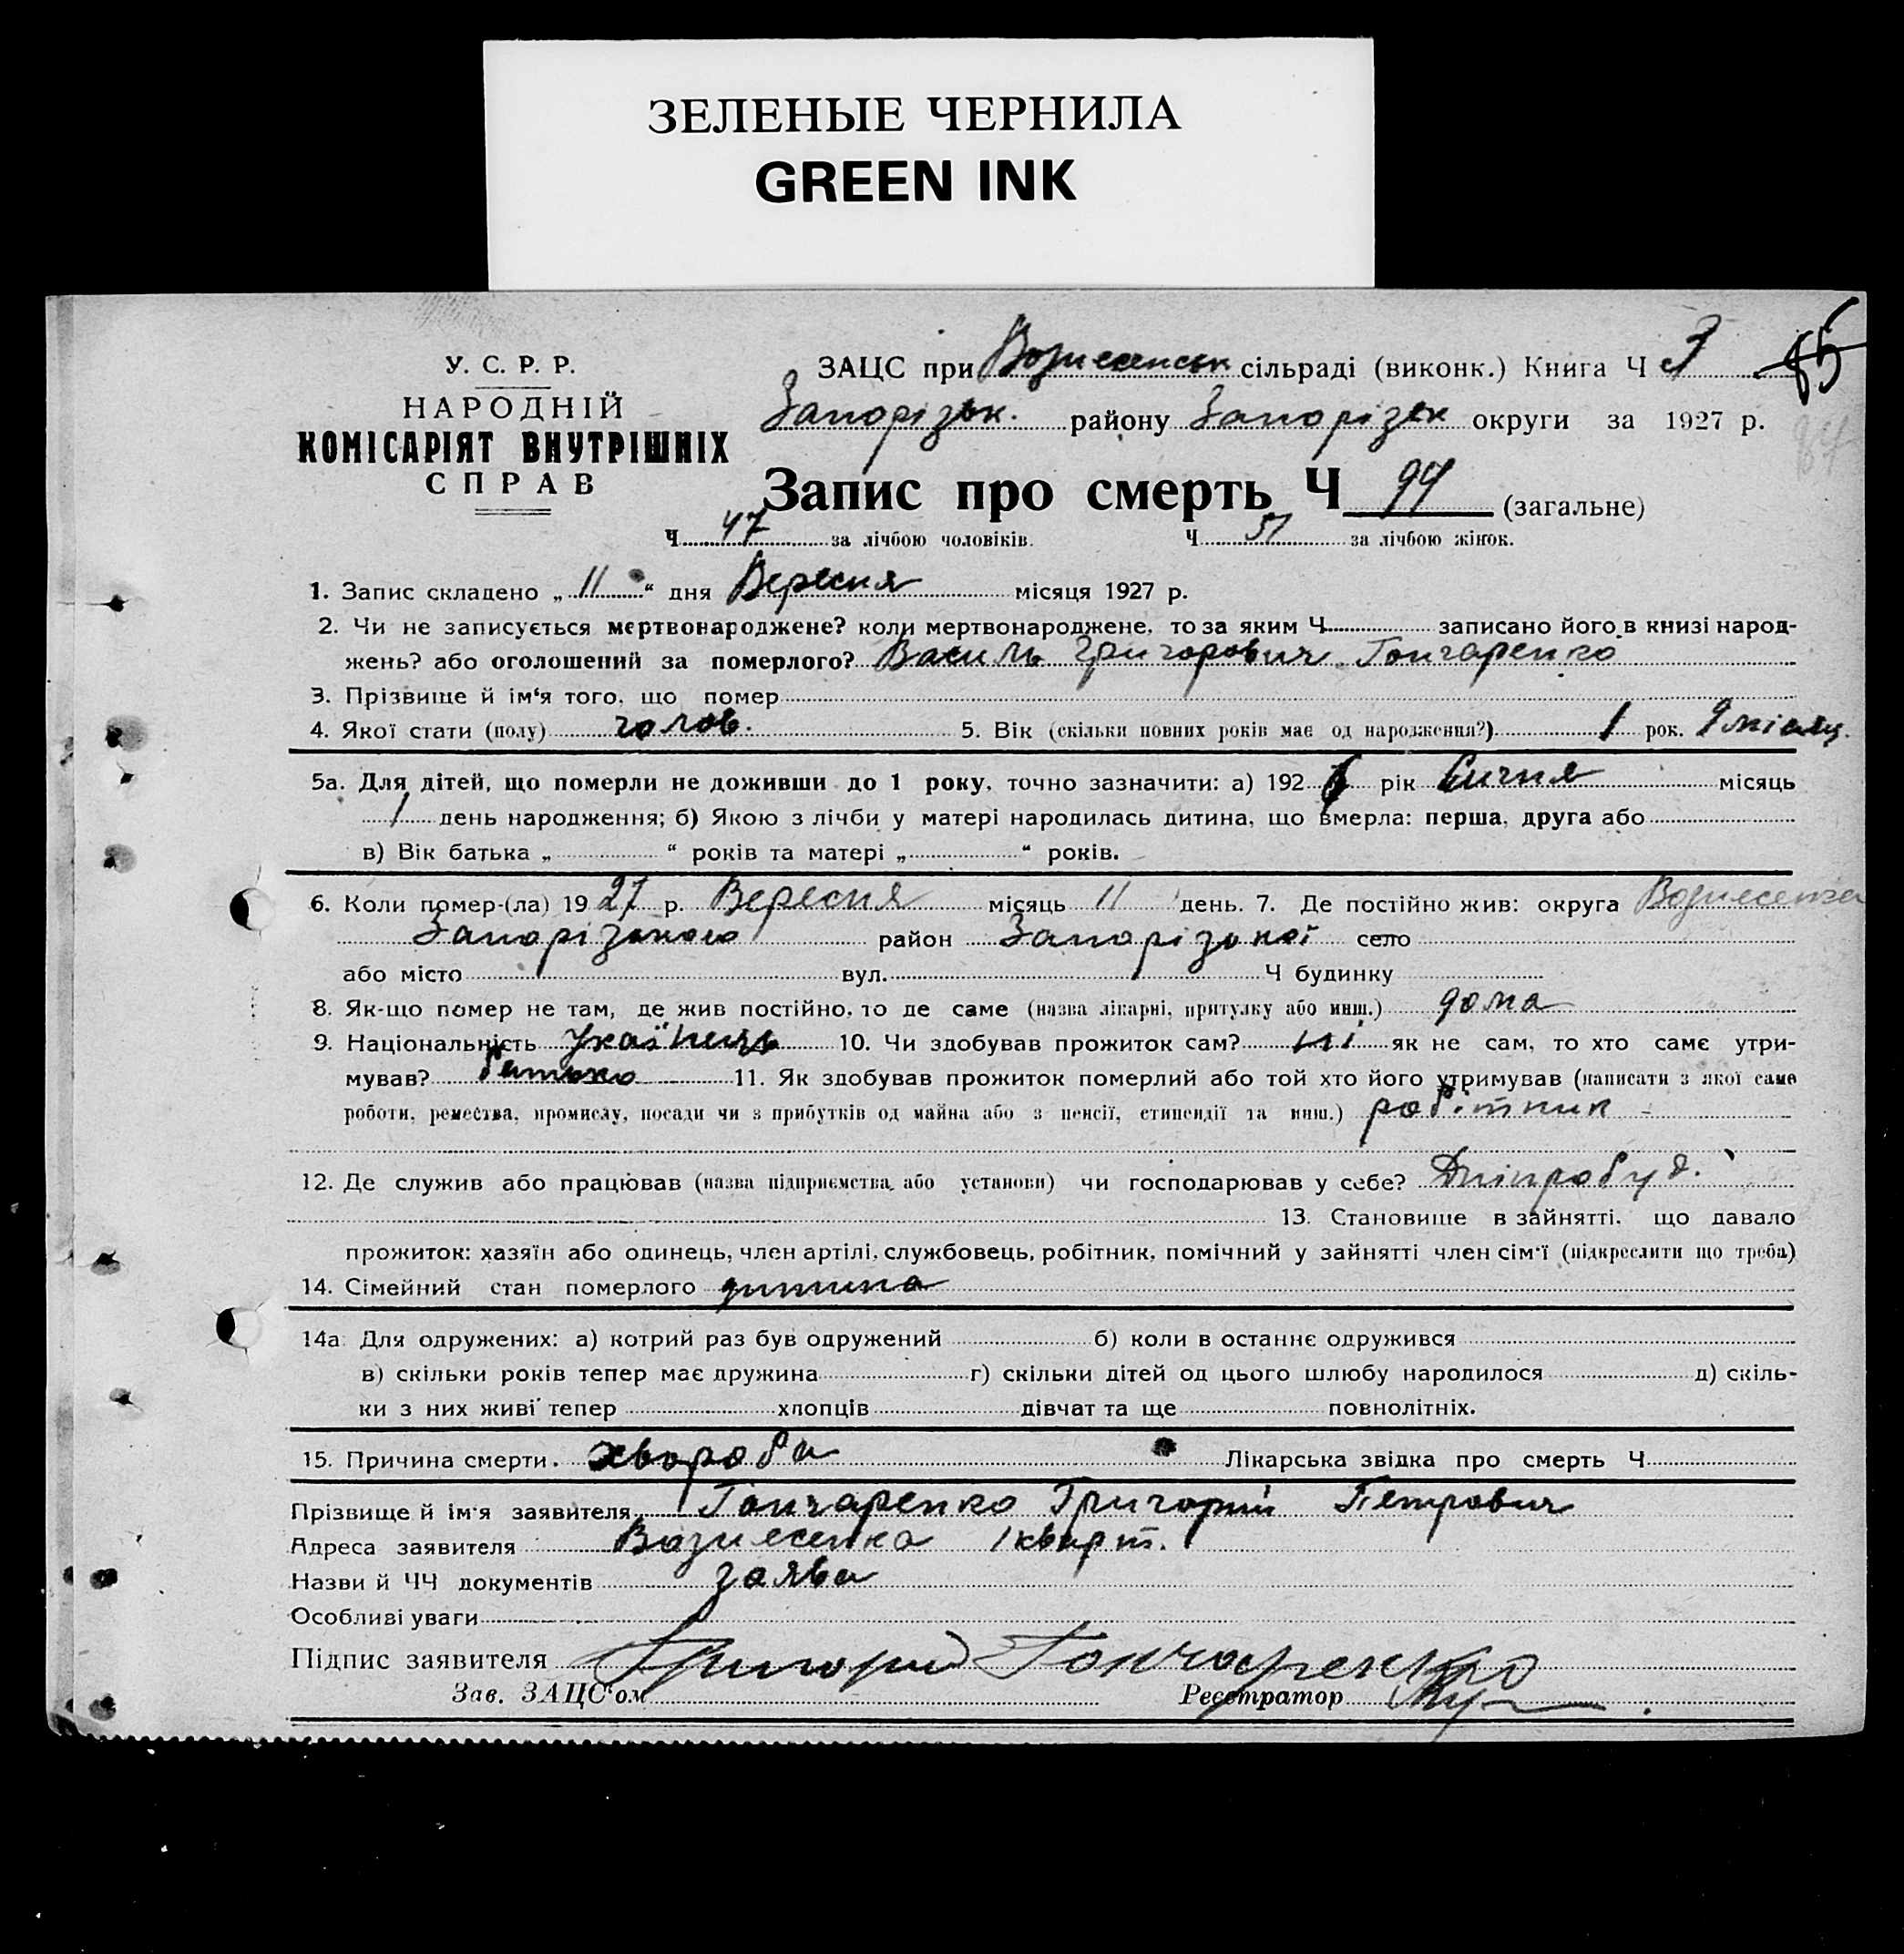 ЗЕЛЕНЫЕ ЧЕРНИЛА
GREEN INK
У. С. Р. Р.
НАРОДНІЙ
КОМІСАРІЯТ ВНУТРІШНІХ
СПРАВ
ЗАЦС при Вознесенськ сільраді (виконк.) Книга Ч 3
85
Запорізьк. району Запорізьк округи за 1927 р.
Запис про смерть Ч (загальне)
Ч 47 за лічбою чоловіків. Ч 51 за лічбою жінок.
1. Запис складено „ 11 “ дня Вересня місяця 1927 р.
2. Чи не записується мертвонароджене? коли мертвонароджене, то за яким Ч. записано його в книзі народ-
жень? або оголошений за померлого? Василь Григорович Гончаренко
3. Прізвище й ім'я того, що помер
4. Якої стати (полу) чолов. 5. Вік (скільки повних років має од народження?) 1 рок. 9 місяц.
5а. Для дітей, що померли не доживши до 1 року, точно зазначити: а) 192 6 рік Січня місяць
1 день народження; б) Якою з лічби у матері народилась дитина, що вмерла: перша, друга або
в) Вік батька „ “ років та матері „ “ років.
6. Коли помер-(ла) 19 27 р. Вересня місяць 11 день. 7. Де постійно жив: округа Вознесенка
Запорізького район Запорізької село
або місто вул. Ч будинку
8. Як-що помер не там, де жив постійно, то де саме (назва лікарні, притулку або инш.) дома
9. Національність Украінець 10. Чи здобував прожиток сам? ні як не сам, то хто саме утри-
мував? батько 11. Як здобував прожиток померлий або той хто його утримував (написати з якої саме
роботи, ремества, промислу, посади чи з прибутків од майна або з пенсії, стипендії та инш.) робітник
12. Де служив або працював (назва підприємства або установи) чи господарював у себе? Дніпробуд.
13. Становище в зайнятті, що давало
прожиток: хазяїн або одинець, член артілі, службовець, робітник, помічний у зайнятті член сім'ї (підкреслити що треба)
14. Сімейний стан померлого дитина
14а Для одружених: а) котрий раз був одружений б) коли в останнє одружився
в) скільки років тепер має дружина г) скільки дітей од цього шлюбу народилося д) скіль-
ки з них живі тепер хлопців дівчат та ще повнолітніх.
15. Причина смерти. хвороба Лікарська звідка про смерть Ч
Прізвище й ім'я заявителя Гончаренко Григорий Петрович
Адреса заявителя Вознесенка 1 кварт.
Назви й ЧЧ документів заява
Особливі уваги
Підпис заявителя Григорий Гончаренко
Зав. ЗАЦС'ом Реєстратор